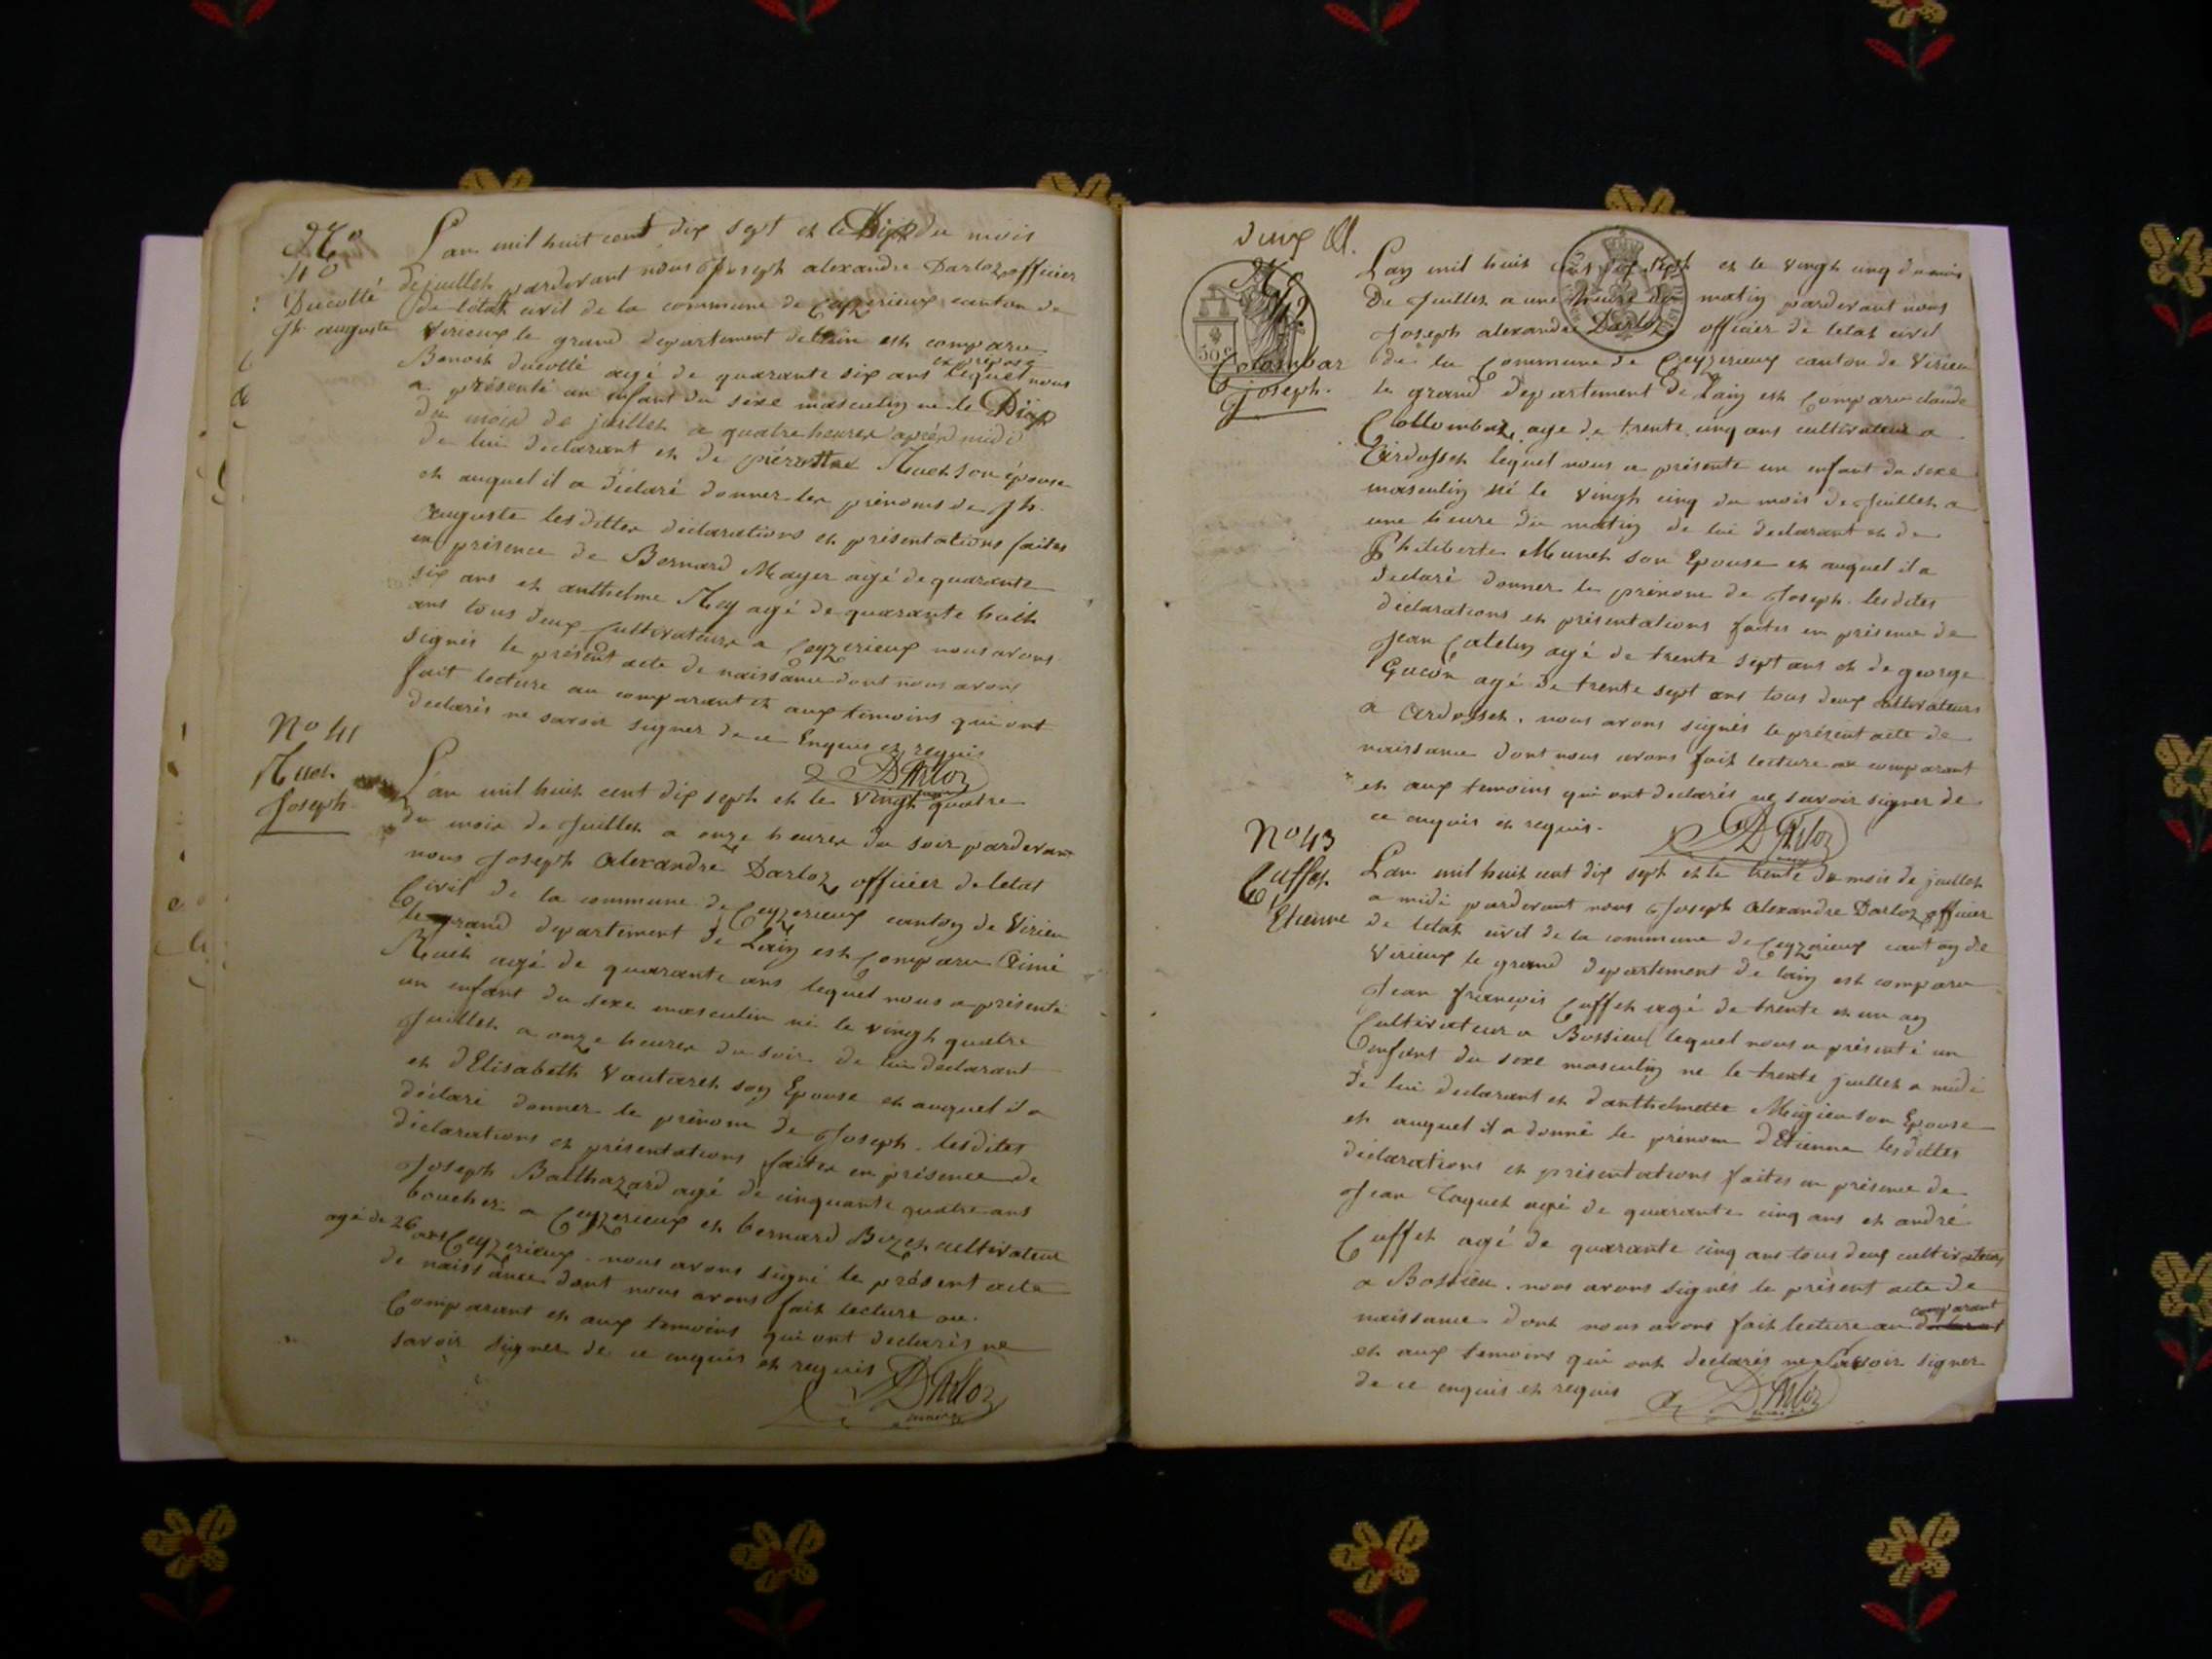 No
40
Ducollé
Jh auguste
Lan mil huit cent dix sept et le Dix du mois
de juillet pardevant nous Joseph alexandre Darloz officier
de létat civil de la commune de Ceyzerieux canton de
Virieux le grand département de lain est comparu
Benoit ducollé agé de quarante six ans expreposé lequel nous
a présenté un enfant du sexe masculin né le Dix
du mois de juillet a quatre heures après midi
de lui declarant et de pierrette Ruet son épouse
et auquel il a déclaré donner les prénoms de Jh.
auguste lesdittes déclarations et présentations faites
en présence de Bernard Mayer agé de quarante
six ans et anthelme Rey agé de quarante huit
ans tous deux Cultivateurs a Ceyzerieux nous avons
signés le présent acte de naissance dont nous avons
fait lecture au comparant et aux temoins qui ont
declarés ne savoir signer de ce Enquis et requis
DArloz
No 41
Ruet
Joseph
Lan mil huit cent dix sept et le Vingt quatre
du mois de Juillet a onze heures du soir pardevant
nous Joseph Alexandre Darloz officier de letat
Civil de la commune de Ceyzerieux canton de Virieu
le grand departement de Lain est comparu Aimé
Ruet agé de quarante ans lequel nous a présenté
un enfant du sexe masculin né le vingt quatre
Juillet a onze heures du soir de lui declarant
et dElisabeth Vautaret son Epouse et auquel il a
déclaré donner le prénom de Joseph. lesdites
déclarations et présentations faites en présence de
Joseph Balthazard agé de cinquante quatre ans
boucher a Ceyzerieux et bernard Bizet cultivateur
agé de 26 ans Ceyzerieux. nous avons signé le présent acte
de naissance dont nous avons fait lecture au
Comparant et aux temoins qui ont declarés ne
savoir signer de ce enquis et requis
DArloz
maire
deux
No 42
50 c
Colombar
joseph.
Lan mil huit cent dix sept et le vingt cinq du mois
De Juillet a une heure du matin pardevant nous
Joseph alexandre Darloz officier de letat civil
de la Commune de Ceyzerieux canton de Virieu
le grand département de Lain est Comparu claude
Collombar, age de trente cinq ans cultivateur a
Ardosset lequel nous a présenté un enfant du sexe
masculin né le vingt cinq du mois de Juillet a
une heure du matin de lui declarant et de
Philiberte Munet son Epouse et auquel il a
declaré donner le prénom de Joseph. lesdites
déclarations et présentations faites en présence de
Jean Catelin agé de trente sept ans et de george
Gucon agé de trente sept ans tous deux cultivateurs
a Ardosset. nous avons signés le présent acte de
naissance dont nous avons fait lecture au comparant
et aux temoins qui ont declarés ne savoir signer de
ce enquis et requis.
DArloz
No 43
Cuffet
Etienne
Lan mil huit cent dix sept et le trente du mois de juillet
a midi pardevant nous Joseph Alexandre Darloz officier
de letat civil de la commune de Ceyzerieux canton de
Virieux le grand departement de lain est comparu
Jean françois Cuffet agé de trente et un an
Cultivateur a Bossieu lequel nous a présenté un
enfant du sexe masculin ne le trente juillet a midi
de lui declarant et danthelmette Mugieu son Epouse
et auquel il a donné le prénom dEtienne lesdittes
déclarations et présentations faites en présence de
Jean Taquet agé de quarante cinq ans et andré
Cuffet agé de quarante cinq ans tous deux cultivateurs
a Bossieu. nous avons signés le présent acte de
naissance dont nous avons fait lecture au declarant comparant
et aux temoins qui ont declarés ne savoir signer
de ce enquis et requis
DArloz